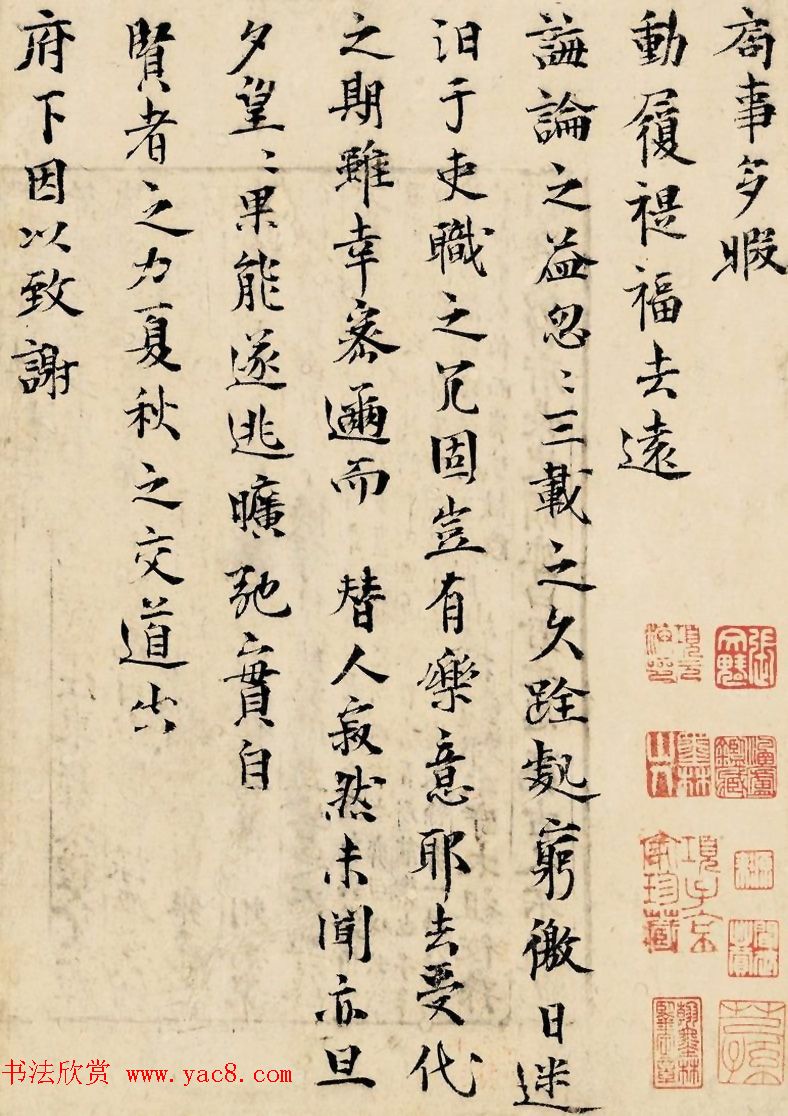 局事多暇
動履禔福去遠
誨論之益忽〻三載之久跧處窮徼日迷
汩于吏職之冗固豈有樂意耶去受代
之期雖幸密邇而替人寂然未聞亦旦
夕望〻果能遂逃曠弛實自
賢者之力夏秋之交道出
府下因以致謝
項元汴印
墨林山人
項子京家珍藏
书法欣赏 www.yac8.com